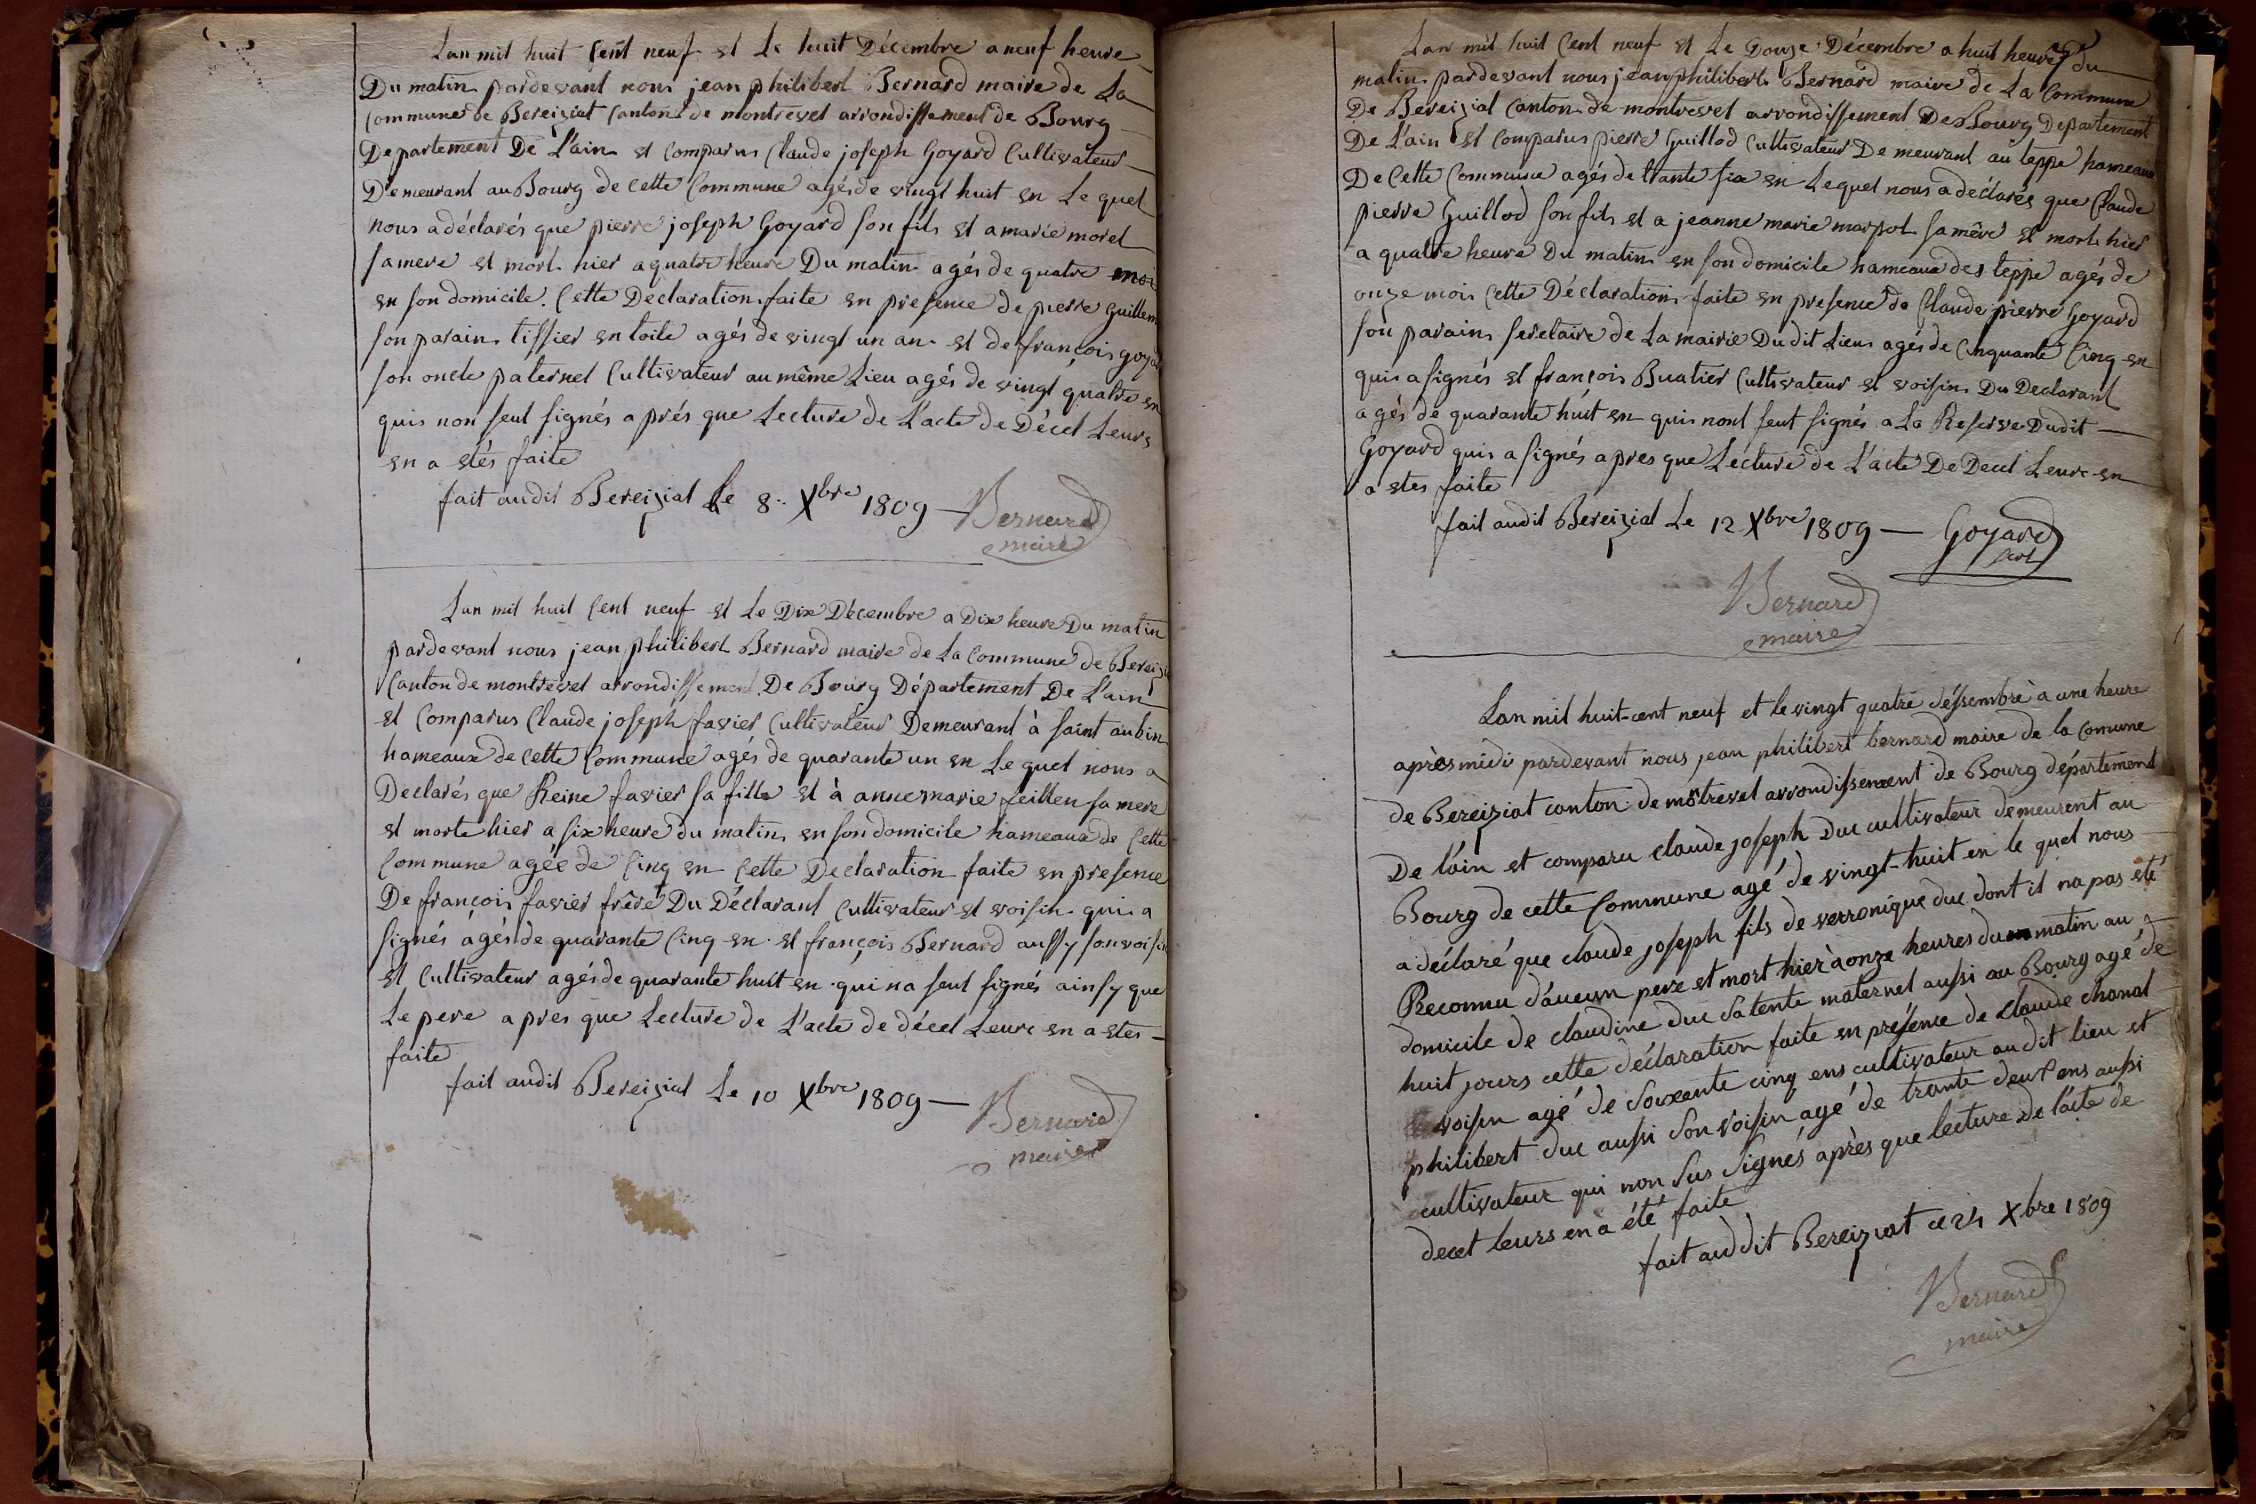 Lan mil huit Cent neuf et Le huit Décembre a neuf heure
Du matin pardevant nous jean philibert Bernard maire de La
Commune de Bereiziat Canton de montrevel arrondissement de Bourg
Departement De L'ain et Comparus Claude joseph Goyard Cultivateur
Demeurant au Bourg de Cette Commune agés de vingt huit en Le quel
nous a déclarés que pierre joseph Goyard son fils et a marie morel
sa mere et mort hier a quatre heure Du matin agés de quatre moi
en son domicile. Cette Declaration faite en presence de pierre Guillem
son parain tissier en toile agés de vingt un an et de françois goya
son oncle paternel Cultivateur au même Lieu agés de vingt quatre en
quis non seut signés aprés que Lecture de L'acte de Décet Leurs
en a etés faite
fait audit Bereiziat Le 8.. Xbre 1809 — Bernard
maire
Lan mil huit Cent neuf et Le Dix Décembre a Dix heure Du matin
pardevant nous jean philibert Bernard maire de La Commune de Berei
Canton de montrevel arrondissement De Bourg Département De L'ain
et Comparus Claude joseph favier Cultivateur Demeurant à saint aubin
hameaux de Cette Commune agés de quarante un en Le quel nous a
Declarés que Reine favier sa fille et à anne marie feillen sa mere
et morte hier a six heure du matin en son domicile hameaux de Cette
Commune agée de Cinq en Cette Declaration faite en presence
De françois favier frère Du Déclarant Cultivateur et voisin quis a
signés agés de quarante Cinq en et françois Bernard aussy son voisin
et Cultivateur agés de quarante huit en qui na seut signés ainsy que
Le pere apres que Lecture de L'acte de décet Leure en a etés —
faite
fait audit Bereiziat Le 10 Xbre 1809 — Bernard
maire
Lan mil huit Cent neuf et Le Douze Décembre a huit heure du
matin pardevant nous jean philibert Bernard maire de La Commune
De Bereiziat Canton de montrevel arrondissement De Bourg Departement
De L'ain et Comparus pierre Guillod Cultivateur Demeurant au teppe hameaux
De Cette Commune agés de trante six en Lequel nous a déclarés que Claude
pierre Guillod son fils et a jeanne marie marpot sa mère et mort hier
a quatre heure Du matin en son domicile hameaux des teppe agés de
onze mois Cette Déclaration faite en presence de Claude pierre Goyard
son parain secretaire de La mairie Dudit Lieu agés de Cinquante Cinq en
quis a signés et françois Buatier Cultivateur et voisin Du Declarant
agés de quarante huit en quis nont seut signés a La Reserve Dudit —
Goyard quis a signés apres que Lecture de L'acte De Decet Leure en
a etes faite
fait audit Bereiziat Le 12 Xbre 1809 — Goyard
Bernard
maire
Lan mil huit-cent neuf et le vingt quatre déssembre à une heure
après midi pardevant nous jean philibert bernard maire de la Comune
de Bereiziat canton de motrevel arrondissement de Bourg département
De l'ain et comparu claude joseph duc cultivateur demeurent au
Bourg de cette Commune agé de vingt-huit en le quel nous —
a déclaré que claude joseph fils de verronique duc dont il na pas eté
Reconnu d'aucun pere et mort hier à onze heures du matin au
domicile de claudine duc sa tente maternel aussi au Bourg agé de
huit jours cette déclaration faite en présence de claude chanal
voisin agé de Soixente cinq ens cultivateur audit lieu et
philibert duc aussi Son voisin agé de trante deux ens aussi
cultivateur qui non Sus Signés après que lecture de l'acte de
decet leurs en a été faite
fait auddit Bereiziat ce 24 Xbre 1809
Bernard
maire